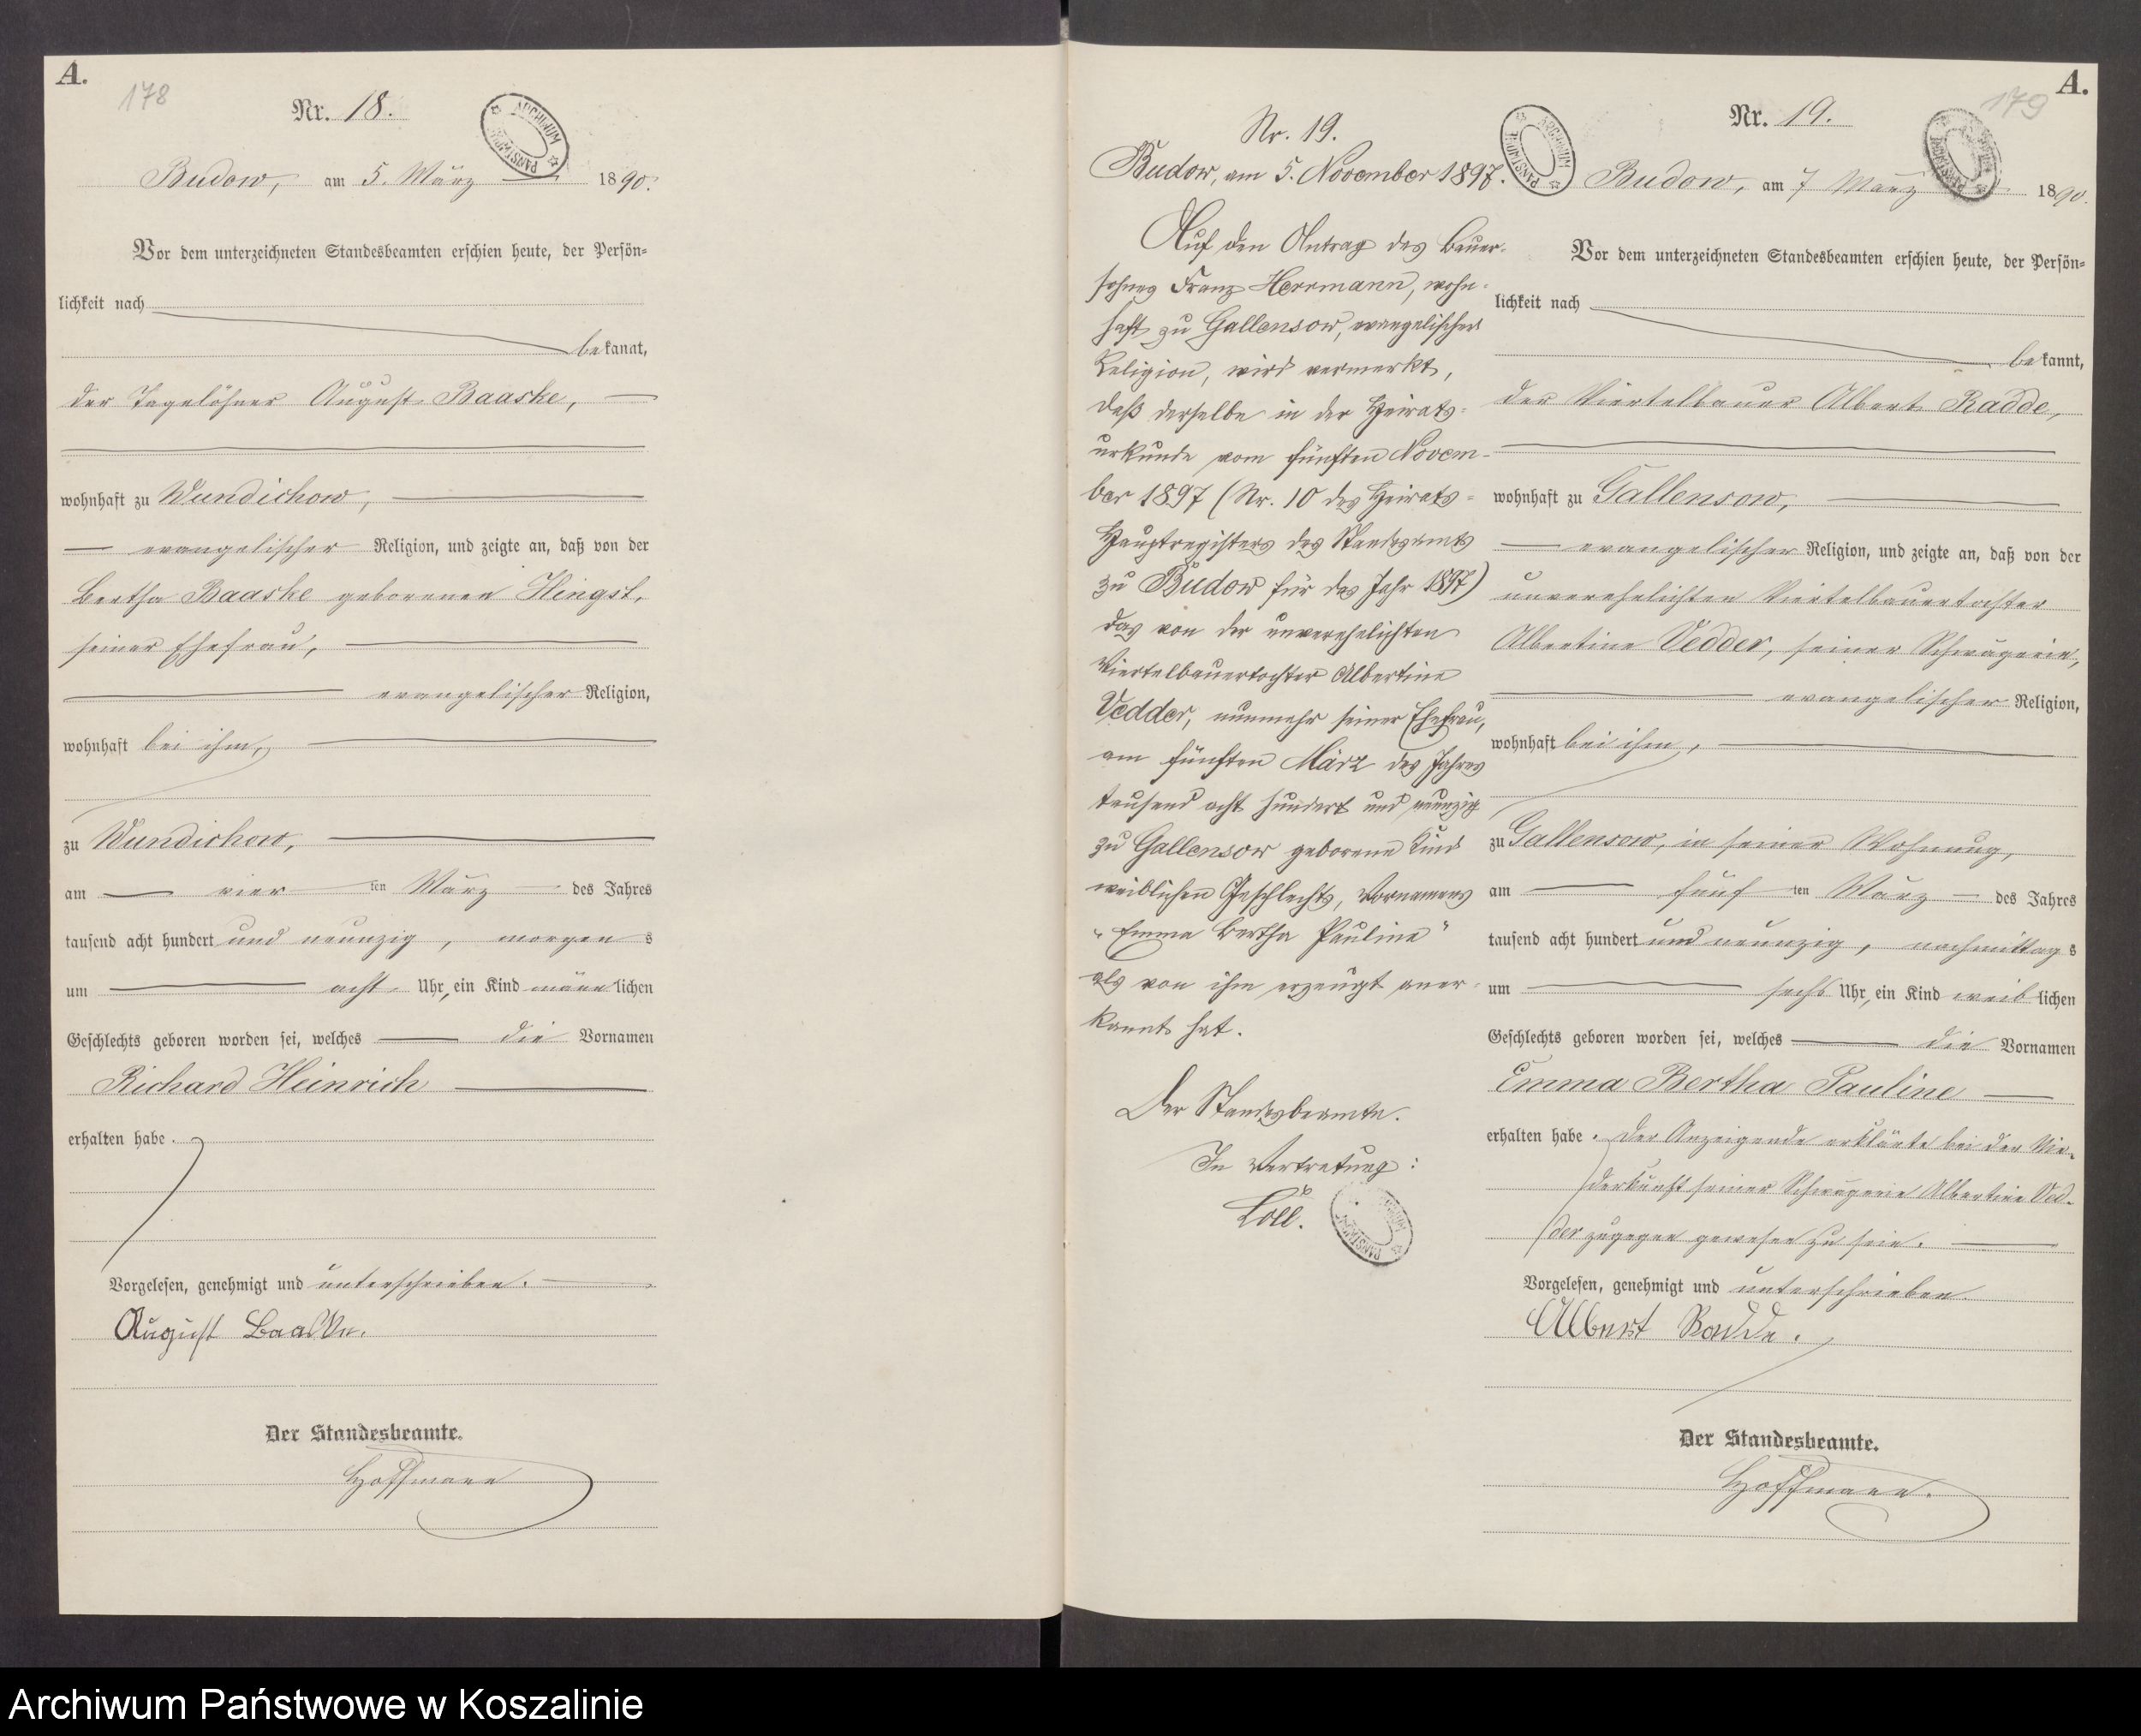 A.
178
Nr. 18.
ARCHIWUM PAŃSTWOWE
Budow, am 5. März 1890.
Vor dem unterzeichneten Standesbeamten erschien heute, der Persön=
lichkeit nach
bekannt,
der Tagelöhner August Baaske,
wohnhaft zu Wundichow,
evangelischer Religion, und zeigte an, daß von der
Bertha Baaske geborenen Hingst,
seiner Ehefrau,
evangelischer Religion,
wohnhaft bei ihm,
zu Wundichow,
am vier ten März des Jahres
tausend acht hundert und neunzig, morgen s
um acht Uhr, ein Kind männlichen
Geschlechts geboren worden sei, welches die Vornamen
Richard Heinrich
erhalten habe.
Vorgelesen, genehmigt und unterschrieben.
August Baaske.
Der Standesbeamte.
Hoffmann
Nr. 19.
Budow, am 5. November 1897.
Auf den Antrag des Bauer-
sohnes Franz Herrmann, wohn-
haft zu Gallensow, evangelischer
Religion, wird vermerkt,
daß derselbe in der Heirats-
urkunde vom fünften Novem-
ber 1897 (Nr. 10 des Heirats-
Hauptregisters des Standesamts
zu Budow für das Jahr 1897)
das von der unverehelichten
Viertelbauertochter Albertine
Vedder, nunmehr seiner Ehefrau,
am fünften März des Jahres
tausend acht hundert und neunzig
zu Gallensow geborene Kind
weiblichen Geschlechts, Vornamens
"Emma Bertha Pauline"
als von ihm erzeugt aner-
kannt hat.
Der Standesbeamte.
In Vertretung:
Löll.
A.
179
Nr. 19.
Budow, am 7 März 1890.
Vor dem unterzeichneten Standesbeamten erschien heute, der Persön=
lichkeit nach
bekannt,
der Viertelbauer Albert Radde,
wohnhaft zu Gallensow,
evangelischer Religion, und zeigte an, daß von der
unverehelichten Viertelbauertochter
Albertine Vedder, seiner Schwägerin,
evangelischer Religion,
wohnhaft bei ihm,
zu Gallensow, in seiner Wohnung,
am fünf ten März des Jahres
tausend acht hundert und neunzig, nachmittag s
um sechs Uhr, ein Kind weiblichen
Geschlechts geboren worden sei, welches die Vornamen
Emma Bertha Pauline
erhalten habe. Der Anzeigende erklärte bei der Nie-
derkunft seiner Schwägerin Albertine Ved-
der zugegen gewesen zu sein.
Vorgelesen, genehmigt und unterschrieben.
Albert Radde.
Der Standesbeamte.
Hoffmann.
Archiwum Państwowe w Koszalinie